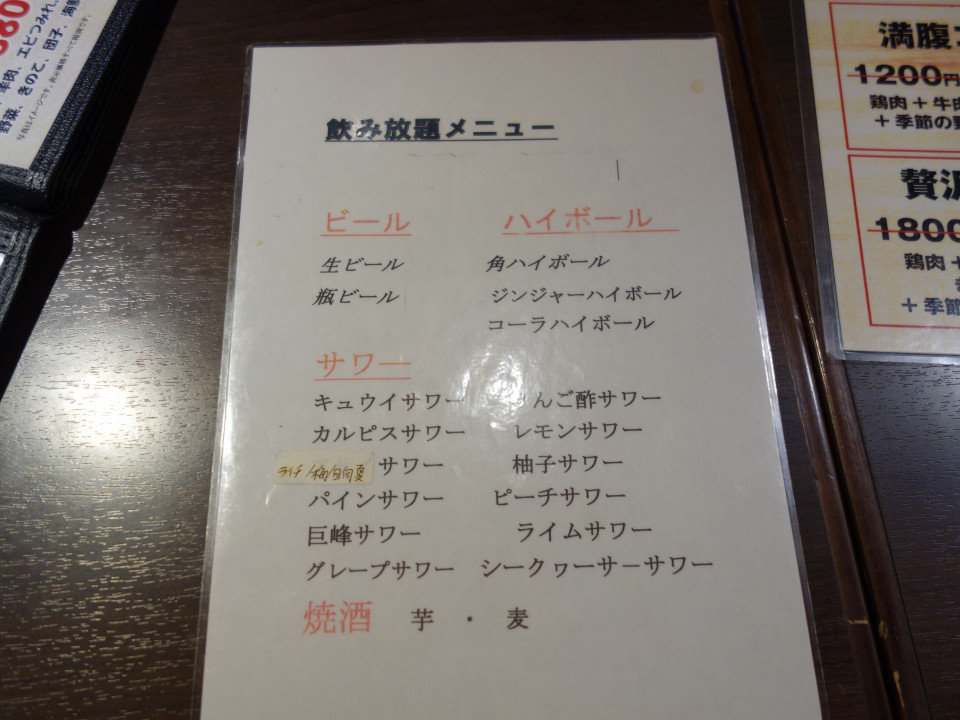 380
羊肉、エビつみれ、
野菜、きのこ、団子、海鮮
写真はイメージです。表示価格すべて税別です。
飲み放題メニュー
ビール
生ビール
瓶ビール
ハイボール
角ハイボール
ジンジャーハイボール
コーラハイボール
サワー
キュウイサワー んご酢サワー
カルピスサワー レモンサワー
ライチ/梅/日向夏 サワー 柚子サワー
パインサワー ピーチサワー
巨峰サワー ライムサワー
グレープサワー シークヮーサーサワー
焼酒 芋 ・ 麦
満腹
1200円
鶏肉+牛肉
+季節の野
贅沢
1800
鶏肉+
+季節